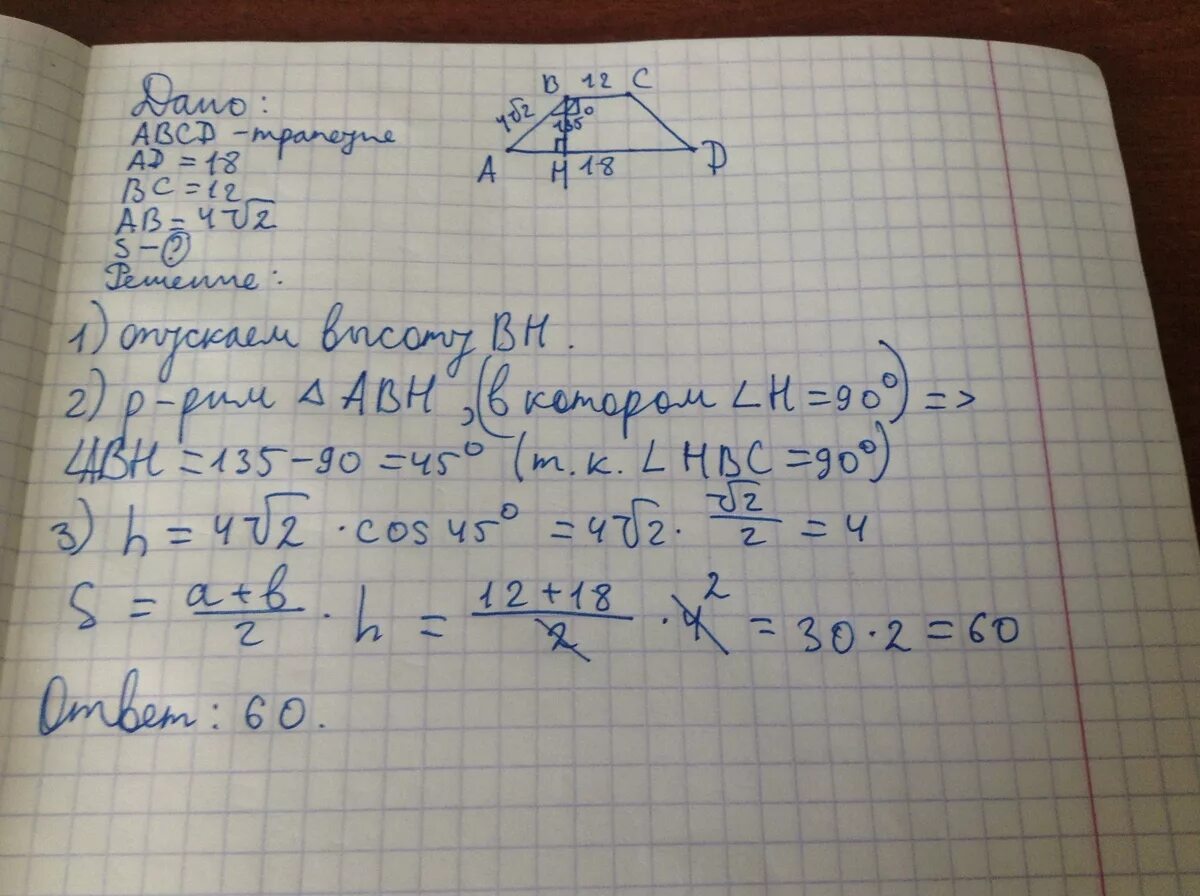 Дано:
ABCD - трапеция
AD = 18
BC = 12
AB = 4√2
S - ?
Решение:
B 12 C
4√2
135°
A H 18 D
1) опускаем высоту BH.
2) р-рим △ ABH, (в котором ∠H = 90°) =>
∠ABH = 135 - 90 = 45° (т.к. ∠HBC = 90°)
3) h = 4√2 · cos 45° = 4√2 · √2/2 = 4
S = a+b/2 · h = 12+18/2 · 4 2 = 30 · 2 = 60
Ответ: 60.